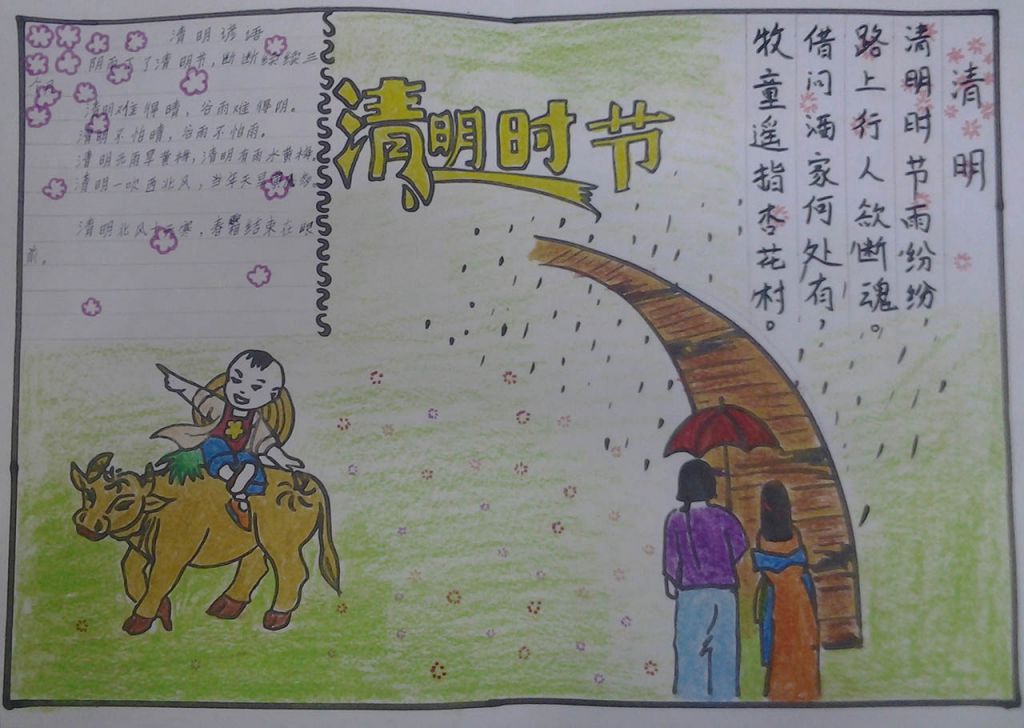 清明谚语
阴雨下了清明节，断断续续三
清明难得晴，谷雨难得阴。
清明不怕晴，谷雨不怕雨。
清明无雨旱黄梅，清明有雨水黄梅。
清明一吹西北风，当年天旱
清明北风十天寒，春霜结束在眼
前。
清明时节
清明
清明时节雨纷纷
路上行人欲断魂。
借问酒家何处有，
牧童遥指杏花村。